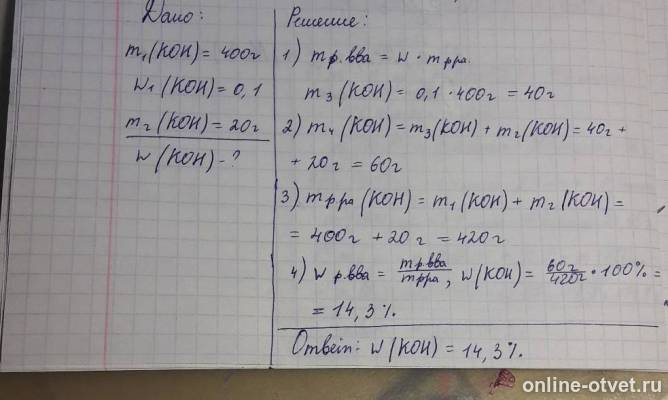 Дано:
m₁(KOH) = 400г
W₁(KOH) = 0,1
m₂(KOH) = 20г
W(KOH) - ?
Решение:
1) mр.вва = w · mрра.
m₃(KOH) = 0,1 · 400г = 40г
2) m₄(KOH) = m₃(KOH) + m₂(KOH) = 40г +
+ 20г = 60г
3) mрра(KOH) = m₁(KOH) + m₂(KOH) =
= 400г + 20г = 420г
4) W р.вва = mр.вва/mрра, W(KOH) = 60г/420г · 100% =
= 14,3%.
Ответ: W(KOH) = 14,3%.
online-otvet.ru